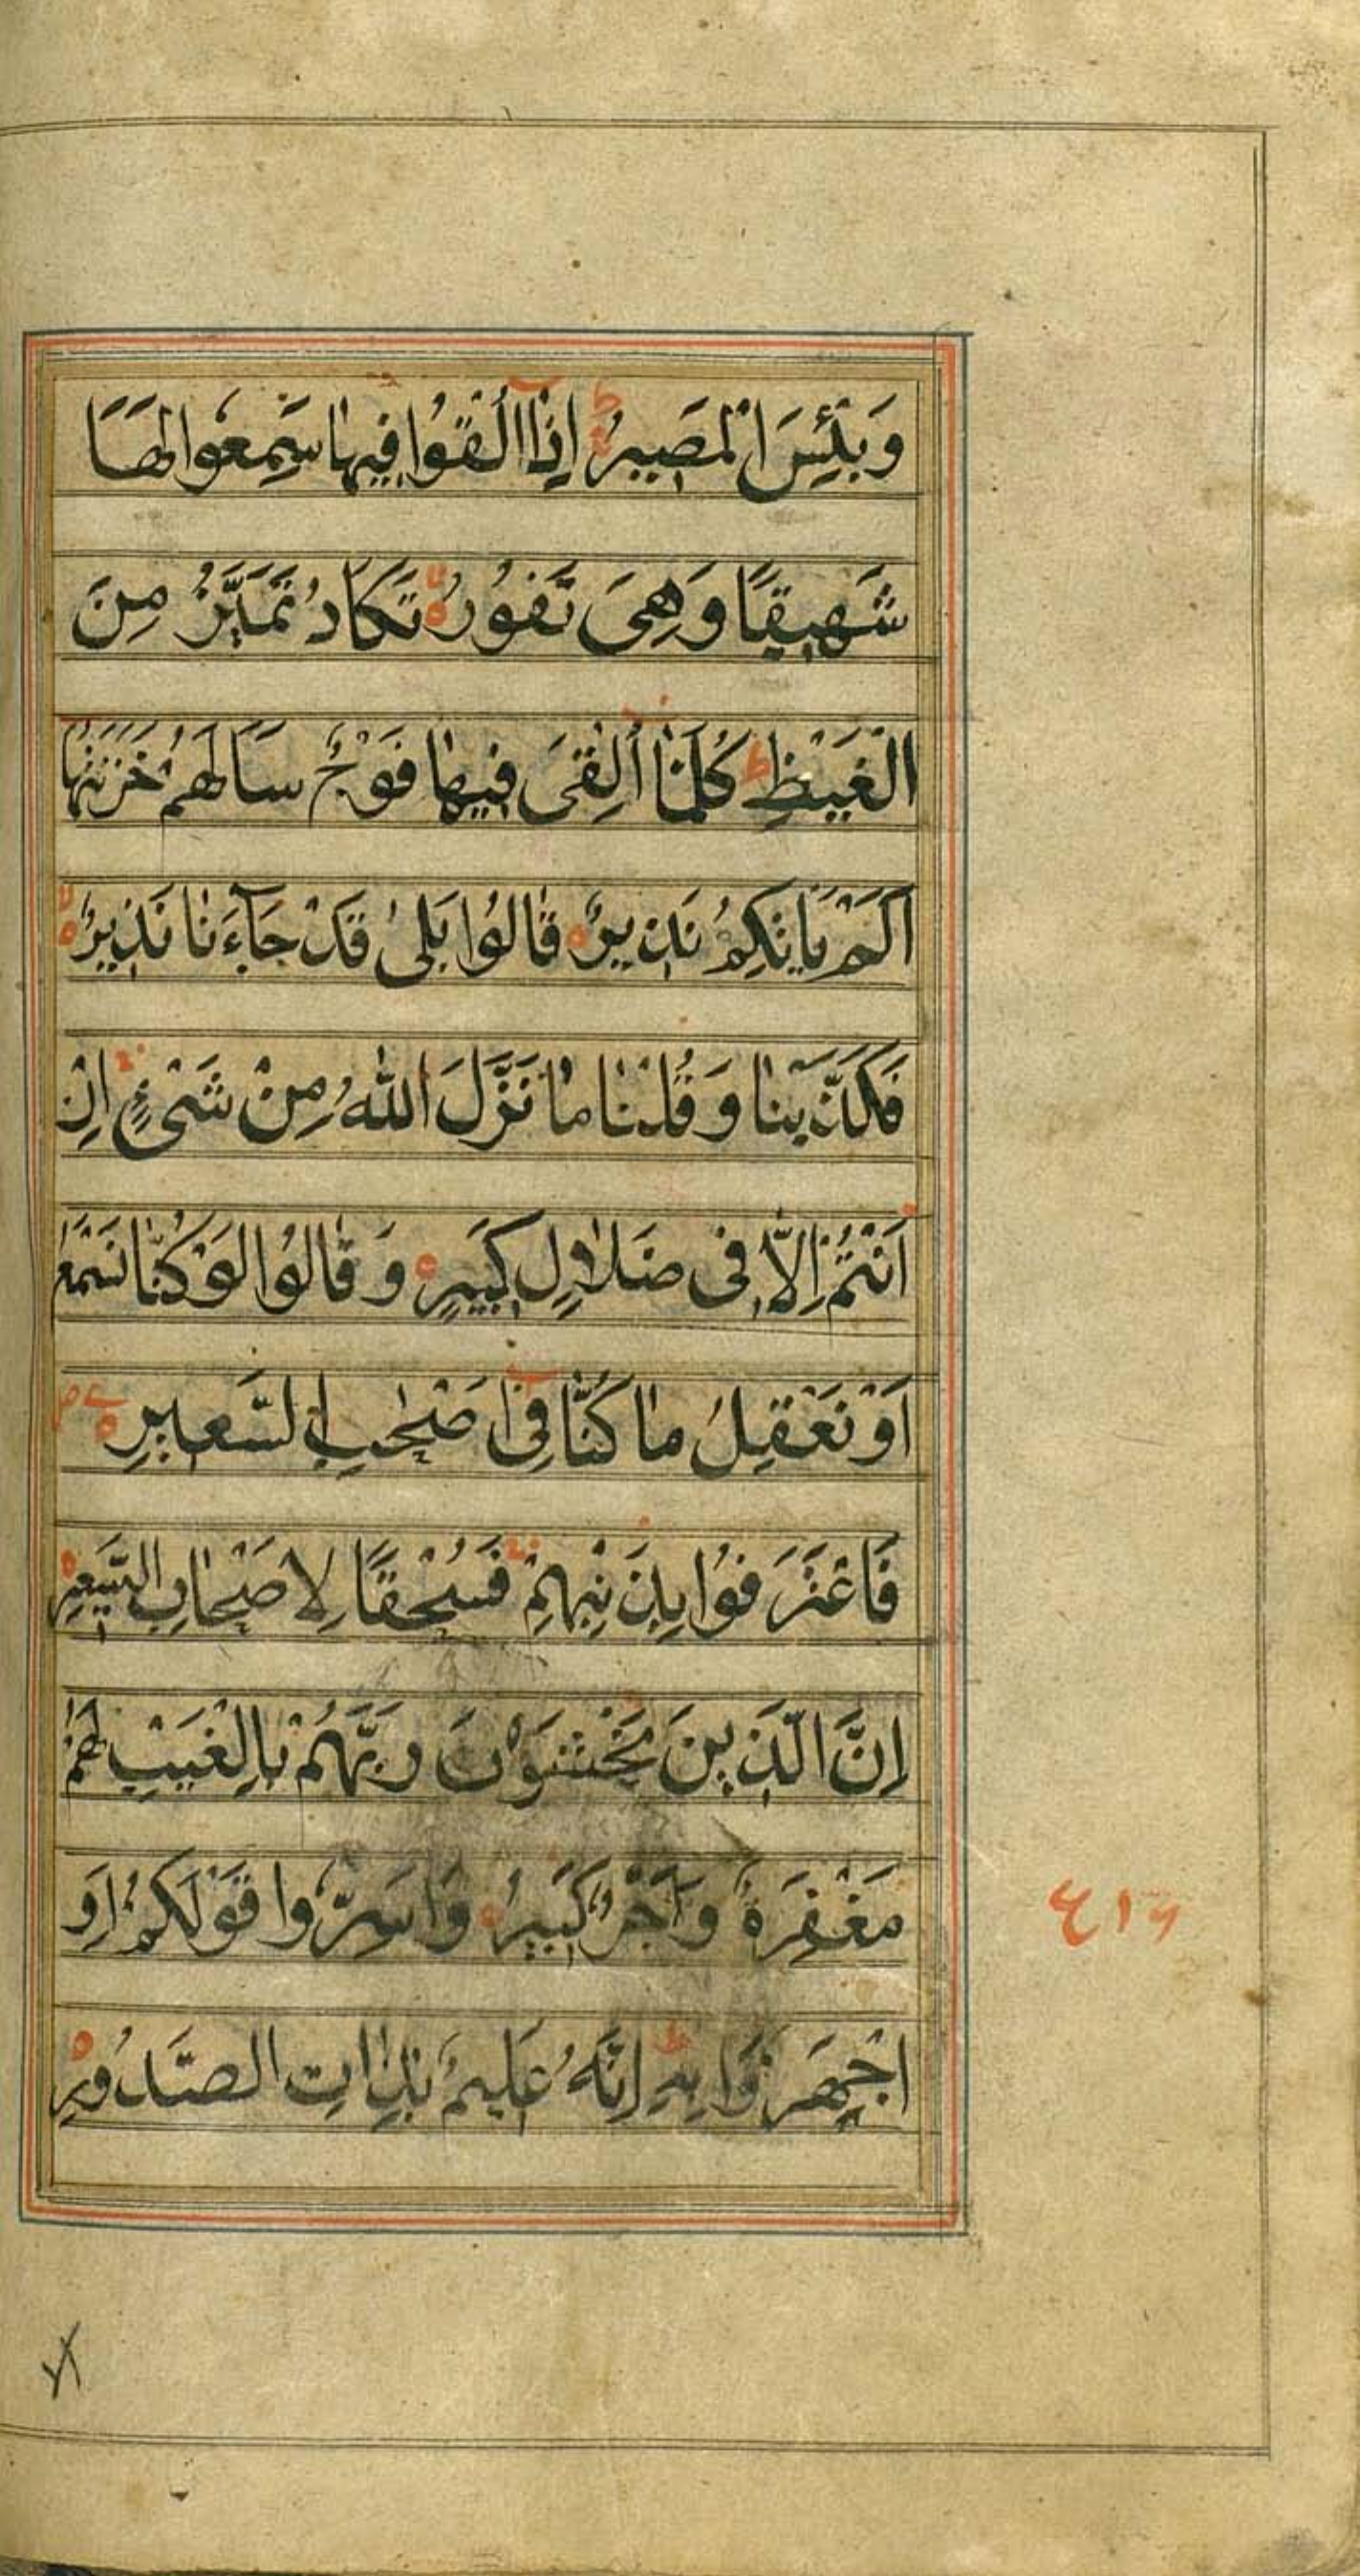 وَبِئْسَ الْمَصِيرُ اِذٰا اُلْقُوا فِيهٰا سَمِعُوا لَهٰا
شَهِيقًا وَهِىَ تَفُورُ تَكَادُ تَمَيَّزُ مِنَ
الْغَيْظِ كُلَّمٰا اُلْقِىَ فِيهٰا فَوْجٌ سَاَلَهُمْ خَزَنَتُهٰا
اَلَمْ يَاْتِكُمْ نَذِيرٌ قٰالُوا بَلىٰ قَدْ جَآءَنٰا نَذِيرٌ
فَكَذَّبْنٰا وَقُلْنٰا مٰا نَزَّلَ اللّٰهُ مِنْ شَىْءٍ اِنْ
اَنْتُمْ اِلاّٰ فى ضَلاٰلٍ كَبِيرٍ وَقٰالُوا لَوْ كُنّٰا نَسْمَعُ
اَوْ نَعْقِلُ مٰا كُنَّا فِى اَصْحٰبِ السَّعِيرِ
فَاعْتَرَفُوا بِذَنْبِهِمْ فَسُحْقًا لِاَصْحٰابِ السَّعِيرِ
اِنَّ الَّذِينَ يَخْشَوْنَ رَبَّهُمْ بِالْغَيْبِ لَهُمْ
مَغْفِرَةٌ وَاَجْرٌ كَبِيرٌ وَاَسِرُّوا قَوْلَكُمْ اَوِ
اجْهَرُوا بِهِ اِنَّهُ عَلِيمٌ بِذٰاتِ الصُّدُورِ